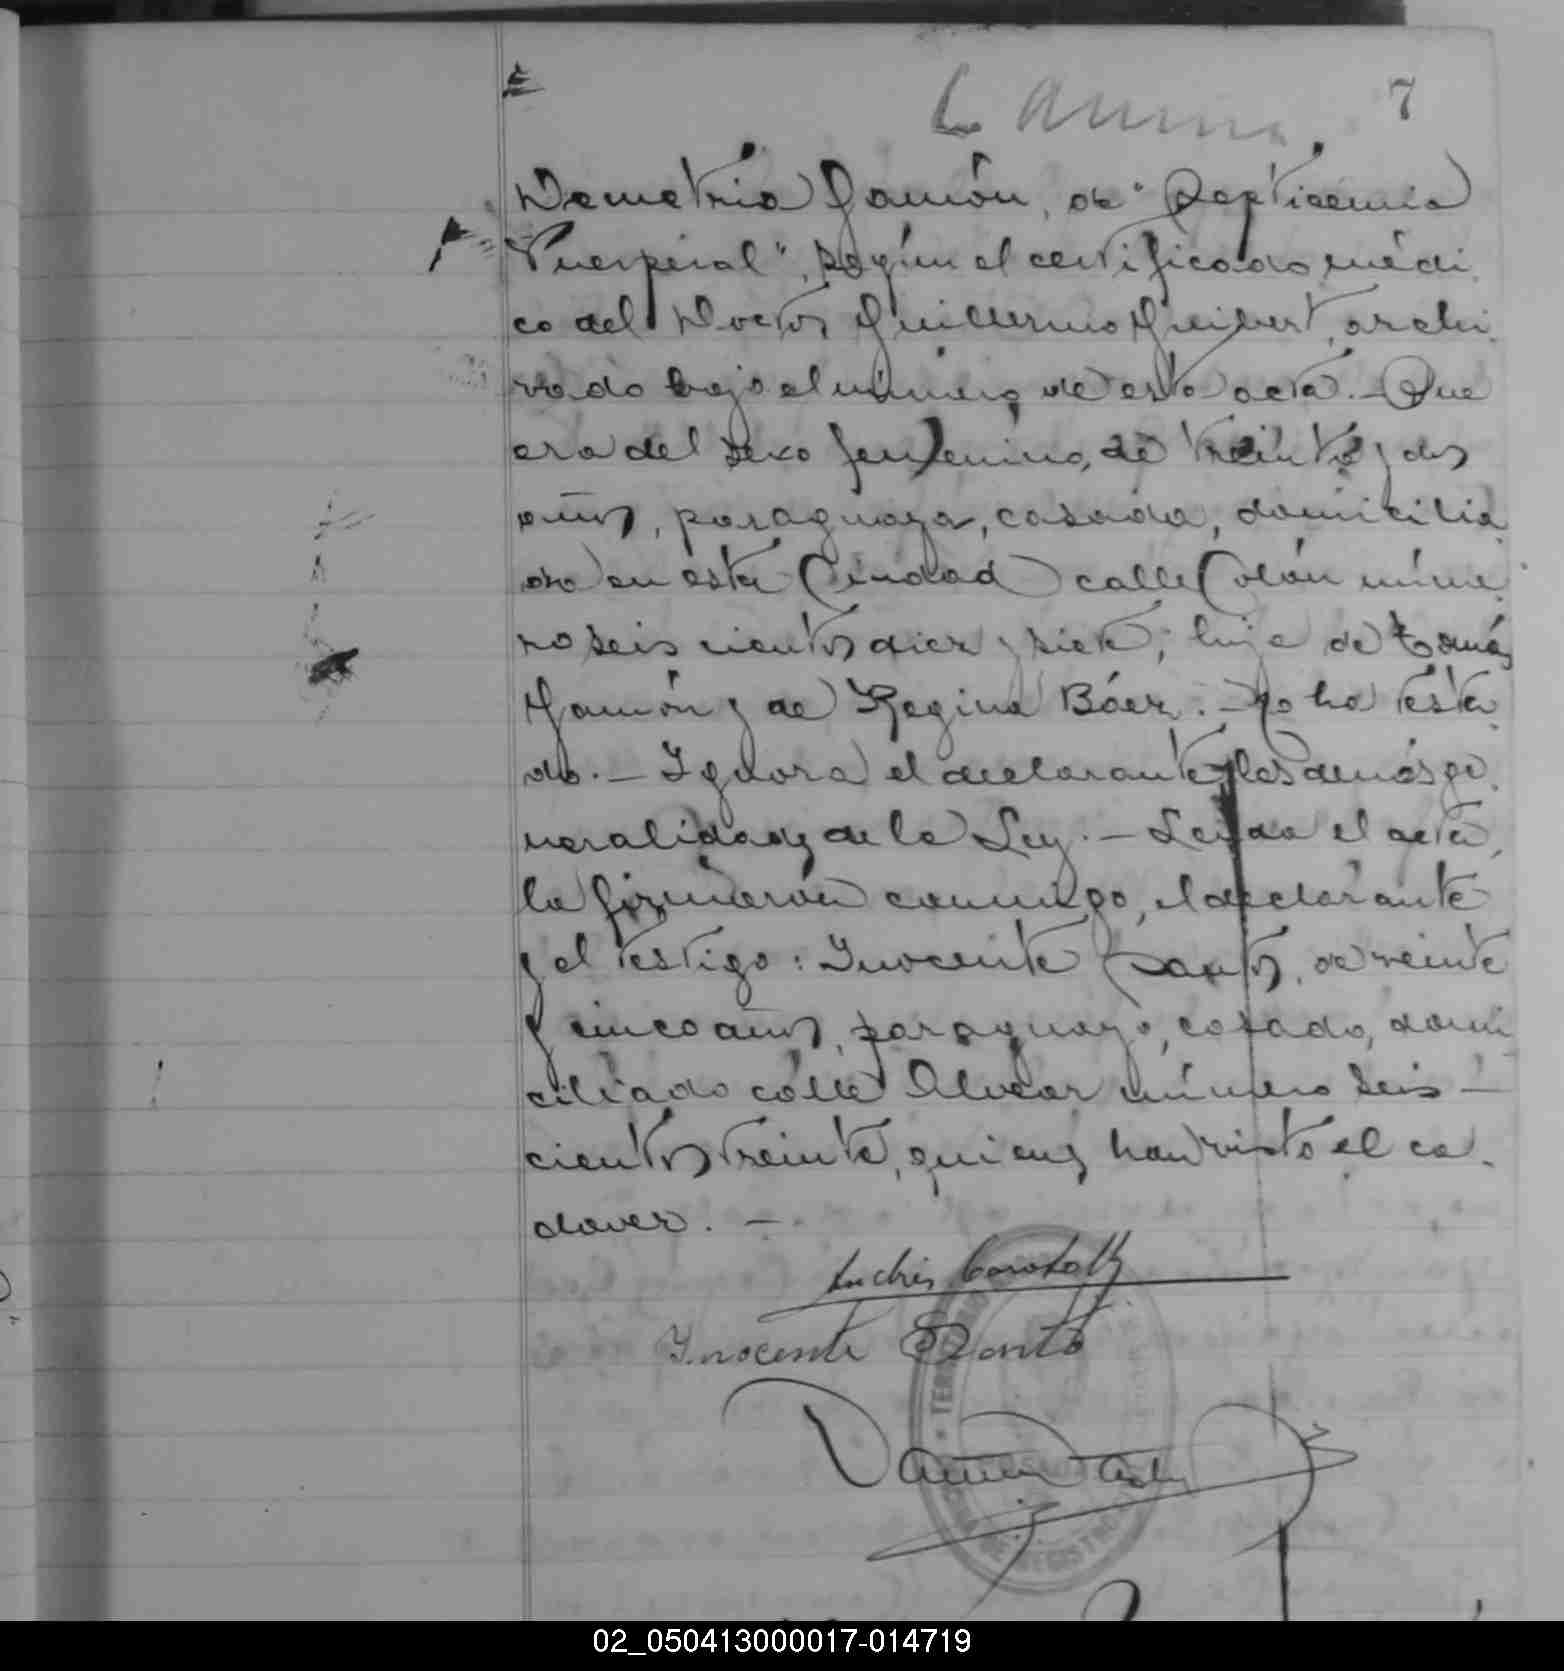 7
Demetria Gamón, de "Septicemia
Puerperal", según el certificado médi
co del Doctor Guillermo Guibert, archi
vado bajo el número de esta acta.- Que
era del sexo femenino, de treinta y dos
años, paraguaya, casada, domicilia
da en esta Ciudad calle Colón núme
ro seis cientos diez y siete; hija de Tomás
Gamón y de Regina Báez.- No ha testa
do.- Ignora el declarante las demás ge
neralidades de la Ley.- Leida el acta,
la firmaron conmigo, el declarante
y el testigo: Inocente Santos, de veinte
y cinco años, paraguayo, casado, domi
ciliado calle Alvear número seis-
cientos treinta, quienes han visto el ca-
daver.-
Andrés
Inocente Santo
REGISTRO
02_050413000017-014719